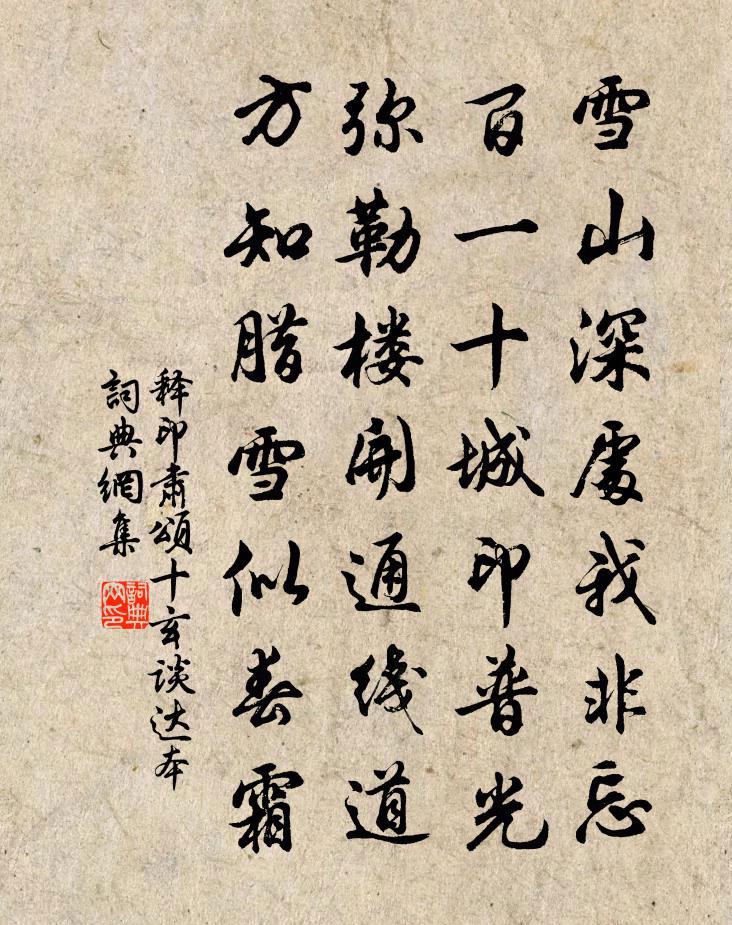 雪山深處我非忘
百一十城印普光
弥勒楼開通綫道
方知腊雪似春霜
释印肅頌十玄谈达本
詞典網集
詞典网印